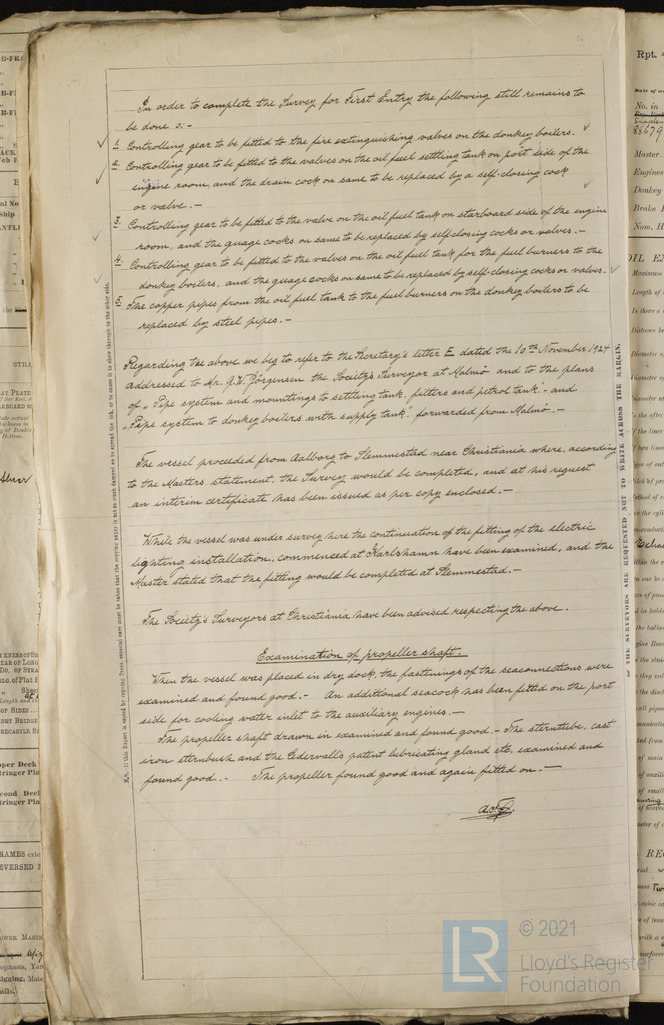 In order to complete the Survey for First Entry the following still remains to
be done :-
1. Controlling gear to be fitted to the fire extinguishing valves on the donkey boilers.
2. Controlling gear to be fitted to the valves on the oil fuel settling tank on port side of the
engine room, and the drain cock on same to be replaced by a self-closing cock
or valve.-
3. Controlling gear to be fitted to the valve on the oil fuel tank on starboard side of the engine
room, and the guage cocks on same to be replaced by selfclosing cocks or valves.-
4. Controlling gear to be fitted to the valves on the oil fuel tank for the fuel burners to the
donkey boilers, and the guage cocks on same to be replaced by self-closing cocks or valves.
5. The copper pipes from the oil fuel tank to the fuel burners on the donkey boilers to be
replaced by steel pipes.-
Regarding the above we beg to refer to the Secretary's letter E dated the 10th November 1924
addressed to Mr. G.W. Jörgensen the Society's Surveyor at Malmö and to the plans
of "Pipe system and mountings to settling tank, filters and petrol tank"- and
"Pipe system to donkey boilers with supply tank" forwarded from Malmö.-
The vessel proceeded from Aalborg to Slemmestad near Christiania where, according
to the Masters statement, the Survey would be completed, and at his request
an interim certificate has been issued as per copy enclosed.-
While the vessel was under survey here the continuation of the fitting of the electric
lighting installation, commenced at Karlshamn have been examined, and the
Master stated that the fitting would be completed at Slemmestad.-
The Society's Surveyors at Christiania have been advised respecting the above.
Examination of propeller shaft.-
When the vessel was placed in dry dock, the fastenings of the seaconnections were
examined and found good.- An additional seacock has been fitted on the port
side for cooling water inlet to the auxiliary engines.-
The propeller shaft drawn in examined and found good.- The sterntube, cast
iron sternbush and the Cedervall's patent lubricating gland etc. examined and
found good.- The propeller found good and again fitted on.-
THE SURVEYORS ARE REQUESTED NOT TO WRITE ACROSS THE MARGIN.
Rpt.
No. in
86679
Master
Engines
Donkey
Brake
Nom. H
OIL EN
LR
© 2021
Lloyd's Register
Foundation